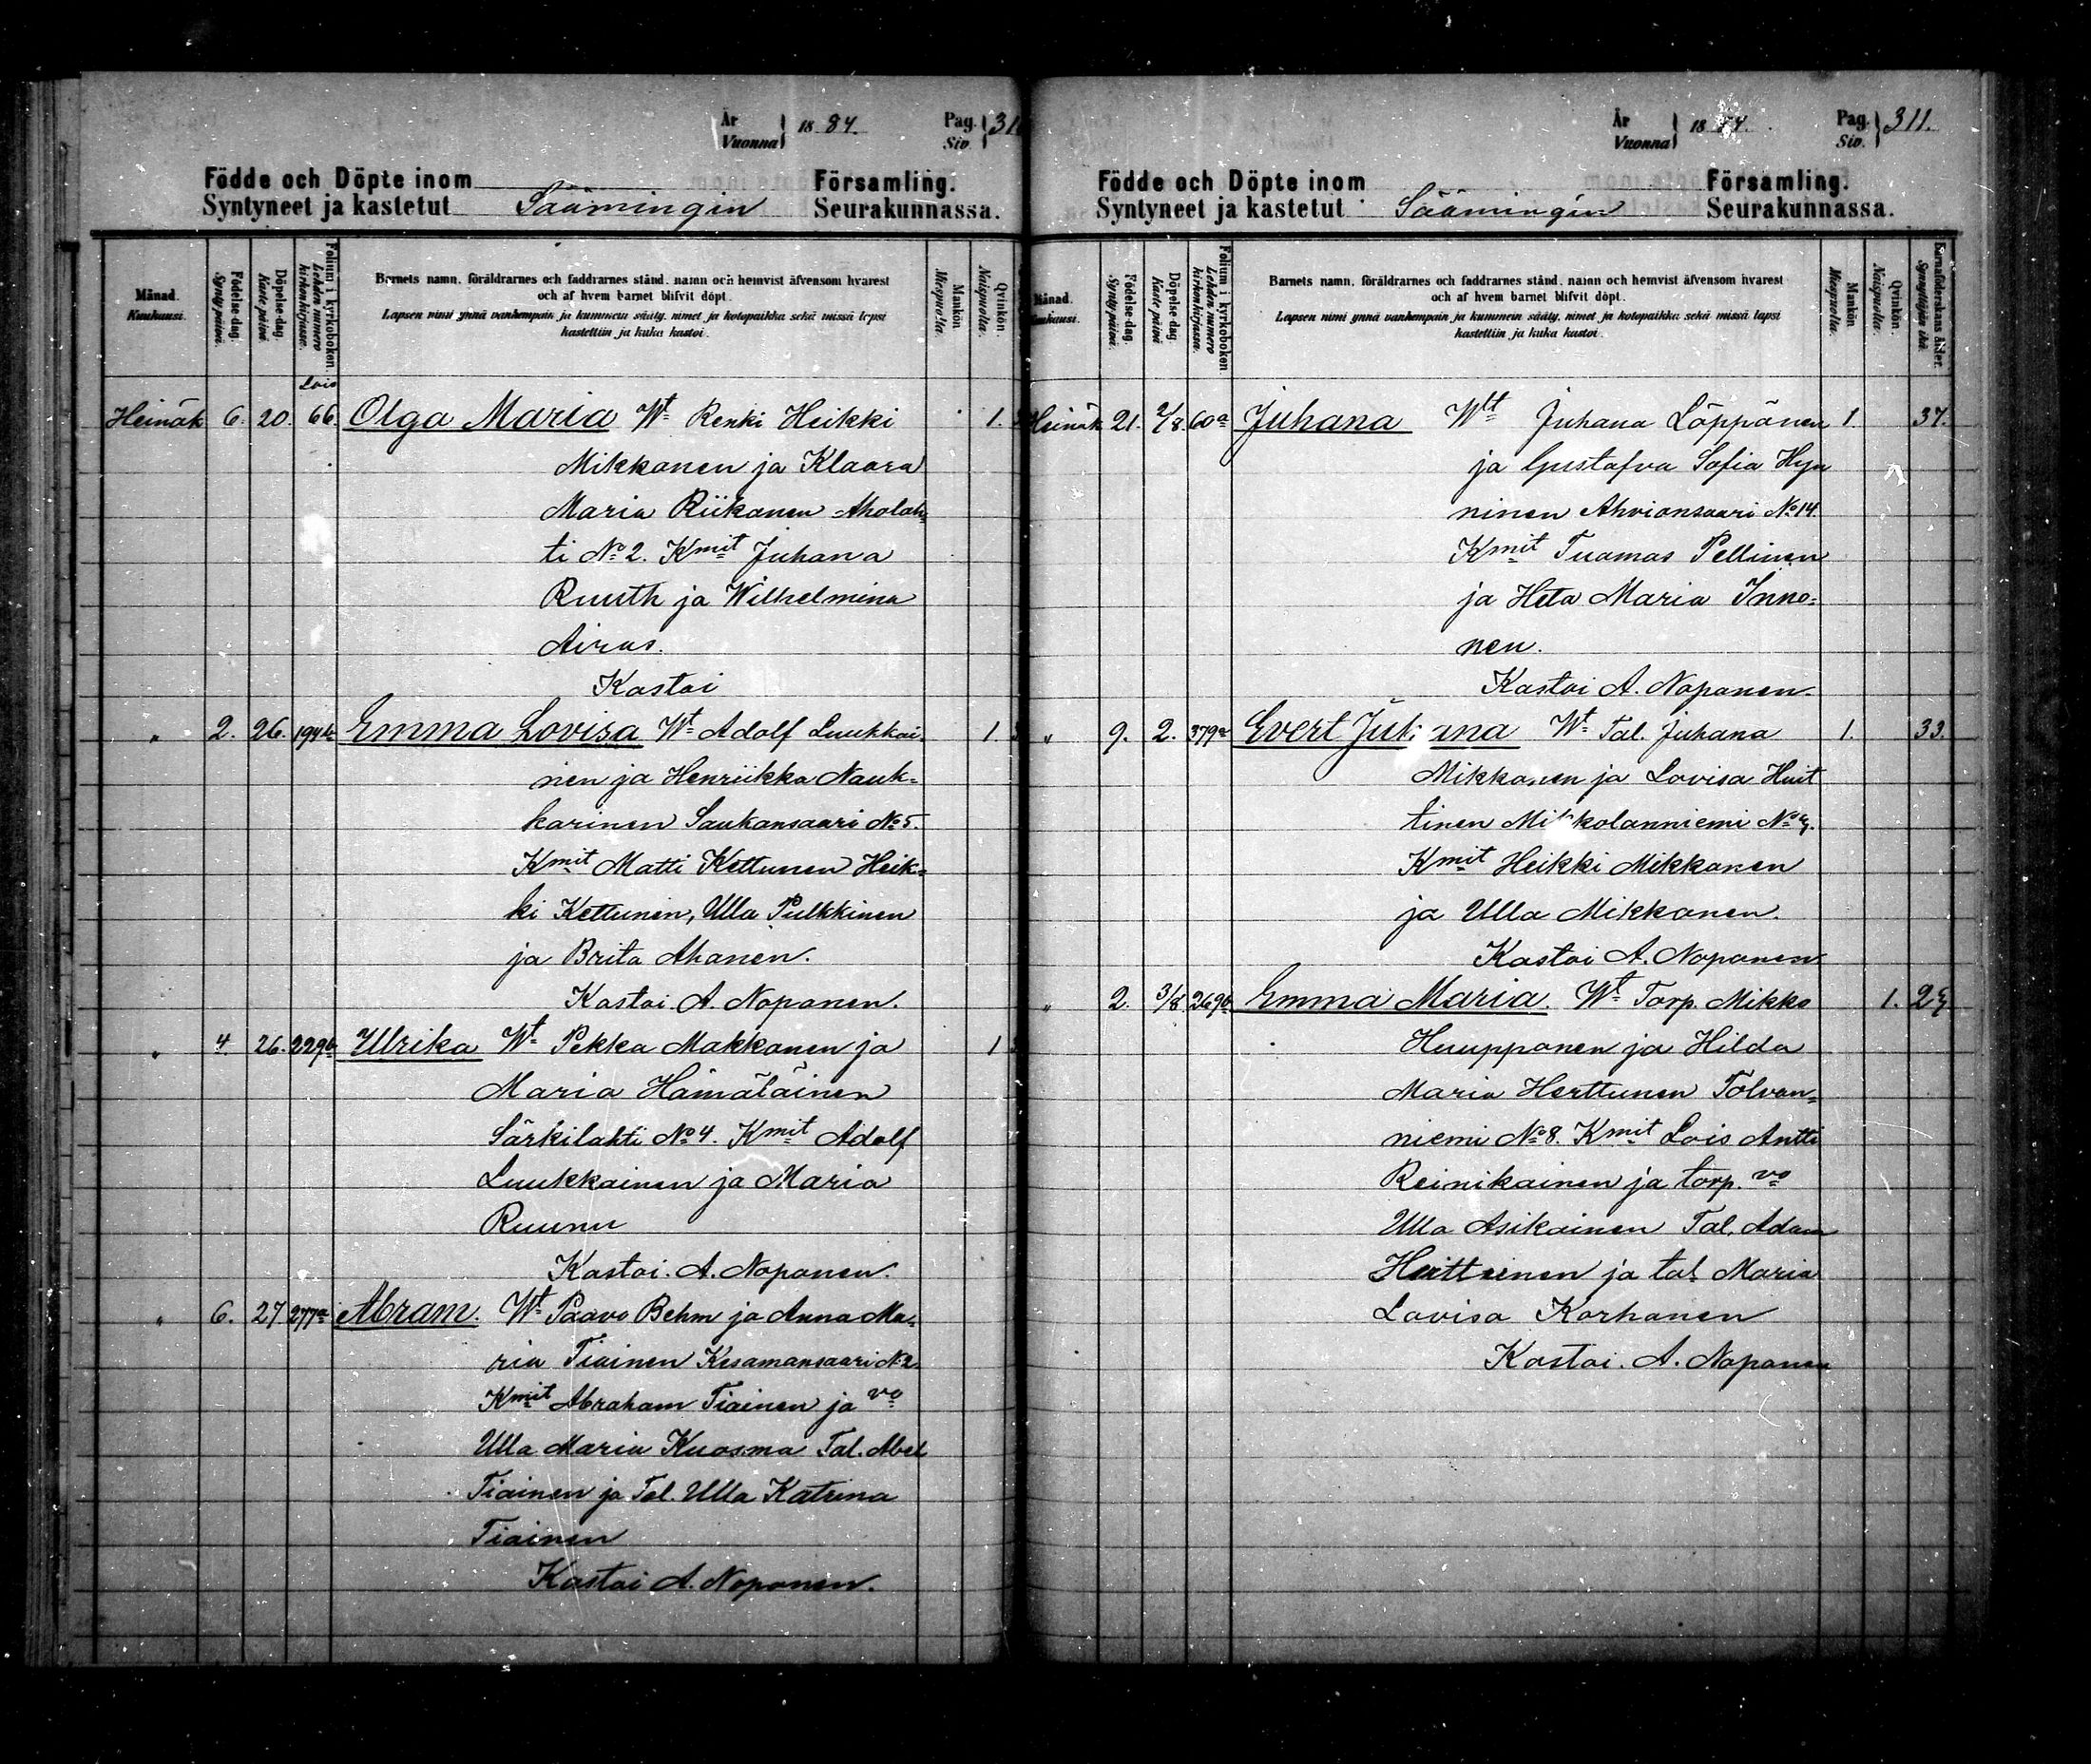 År Vuonna 1884. Pag. Siv. 31
Födde och Döpte inom Församling.
Syntyneet ja kastetut Säämingin Seurakunnassa.
Månad. Kuukausi.
Födelse-dag. Syntypäivä.
Döpelse-dag. Kastepäivä
Folium i kyrkoboken. Lehden numero kirkonkirjassa.
Barnets namn, föräldrarnes och faddrarnes stånd, namn och hemvist äfvensom hvarest
och af hvem barnet blifvit döpt.
Lapsen nimi ynnä vanhempain ja kummein sääty, nimet ja kotopaikka sekä missä lapsi
kastettiin ja kuka kastoi.
Mankön. Miespuolta.
Qvinkön. Naispuolta.
Lois
Heinäk 6. 20. 66. Olga Maria Wt Renki Heikki 1.
Mikkonen ja Klaara
Maria Riikonen Aholah-
ti No 2. Kmit Juhana
Ruuth ja Wilhelmina
Airas.
Kastoi
" 2. 26. Emma Lovisa Wt Adolf Luukkai- 1
nen ja Henriikka Nauk-
karinen Saukonsaari No 5.
Kmit Matti Kettunen Heik-
ki Kettunen, Ulla Pulkkinen
ja Brita Ahonen.
Kastoi A. Noponen.
" 4. 26. 229b Ulrika Wt Pekka Makkonen ja 1
Maria Hämäläinen
Särkilahti No 4. Kmit Adolf
Luukkainen ja Maria
Ruunu
Kastoi. A. Noponen.
" 6. 27 277a Abram. Wt Paavo Behm ja Anna Ma-
ria Tiainen Kesamansaari No 2.
Kmit Abraham Tiainen ja vo
Ulla Maria Kuosma Tal. Abel
Tiainen ja Tal. Ulla Katrina
Tiainen
Kastoi A. Noponen.
År Vuonna 1884. Pag. Siv. 311.
Födde och Döpte inom Församling.
Syntyneet ja kastetut Säämingin Seurakunnassa.
Månad. Kuukausi.
Födelse-dag. Syntypäivä.
Döpelse-dag. Kastepäivä
Folium i kyrkoboken. Lehden numero kirkonkirjassa.
Barnets namn, föräldrarnes och faddrarnes stånd, namn och hemvist äfvensom hvarest
och af hvem barnet blifvit döpt.
Lapsen nimi ynnä vanhempain ja kummein sääty, nimet ja kotopaikka sekä missä lapsi
kastettiin ja kuka kastoi.
Mankön. Miespuolta.
Qvinkön. Naispuolta.
Barnaföderskans ålder. Synnyttäjän ikä.
Heinäk 21. 2/8. 60a Juhana Wtt Juhana Löppönen 1. 37.
ja Gustafva Sofia Hyn
ninen Ahvionsaari No 14.
Kmit Tuomas Pellinen
ja Heta Maria Inno-
nen.
Kastoi A. Noponen.
" 9. 2. 379a Evert Juhana Wt Tal. Juhana 1. 33.
Mikkonen ja Lovisa Huit
tinen Mikkolanniemi No
Kmit Heikki Mikkonen
ja Ulla Mikkonen.
Kastoi A. Noponen
" 2. 3/8 269b Emma Maria. Wt Torp. Mikko 1.
Huupponen ja Hilda
Maria Herttunen Tolvan-
niemi No 8. Kmit Lois Antti
Reinikainen ja torp. vo
Ulla Asikainen Tal. Adam
Huittinen ja tal Maria
Lovisa Korhonen
Kastoi. A. Noponen